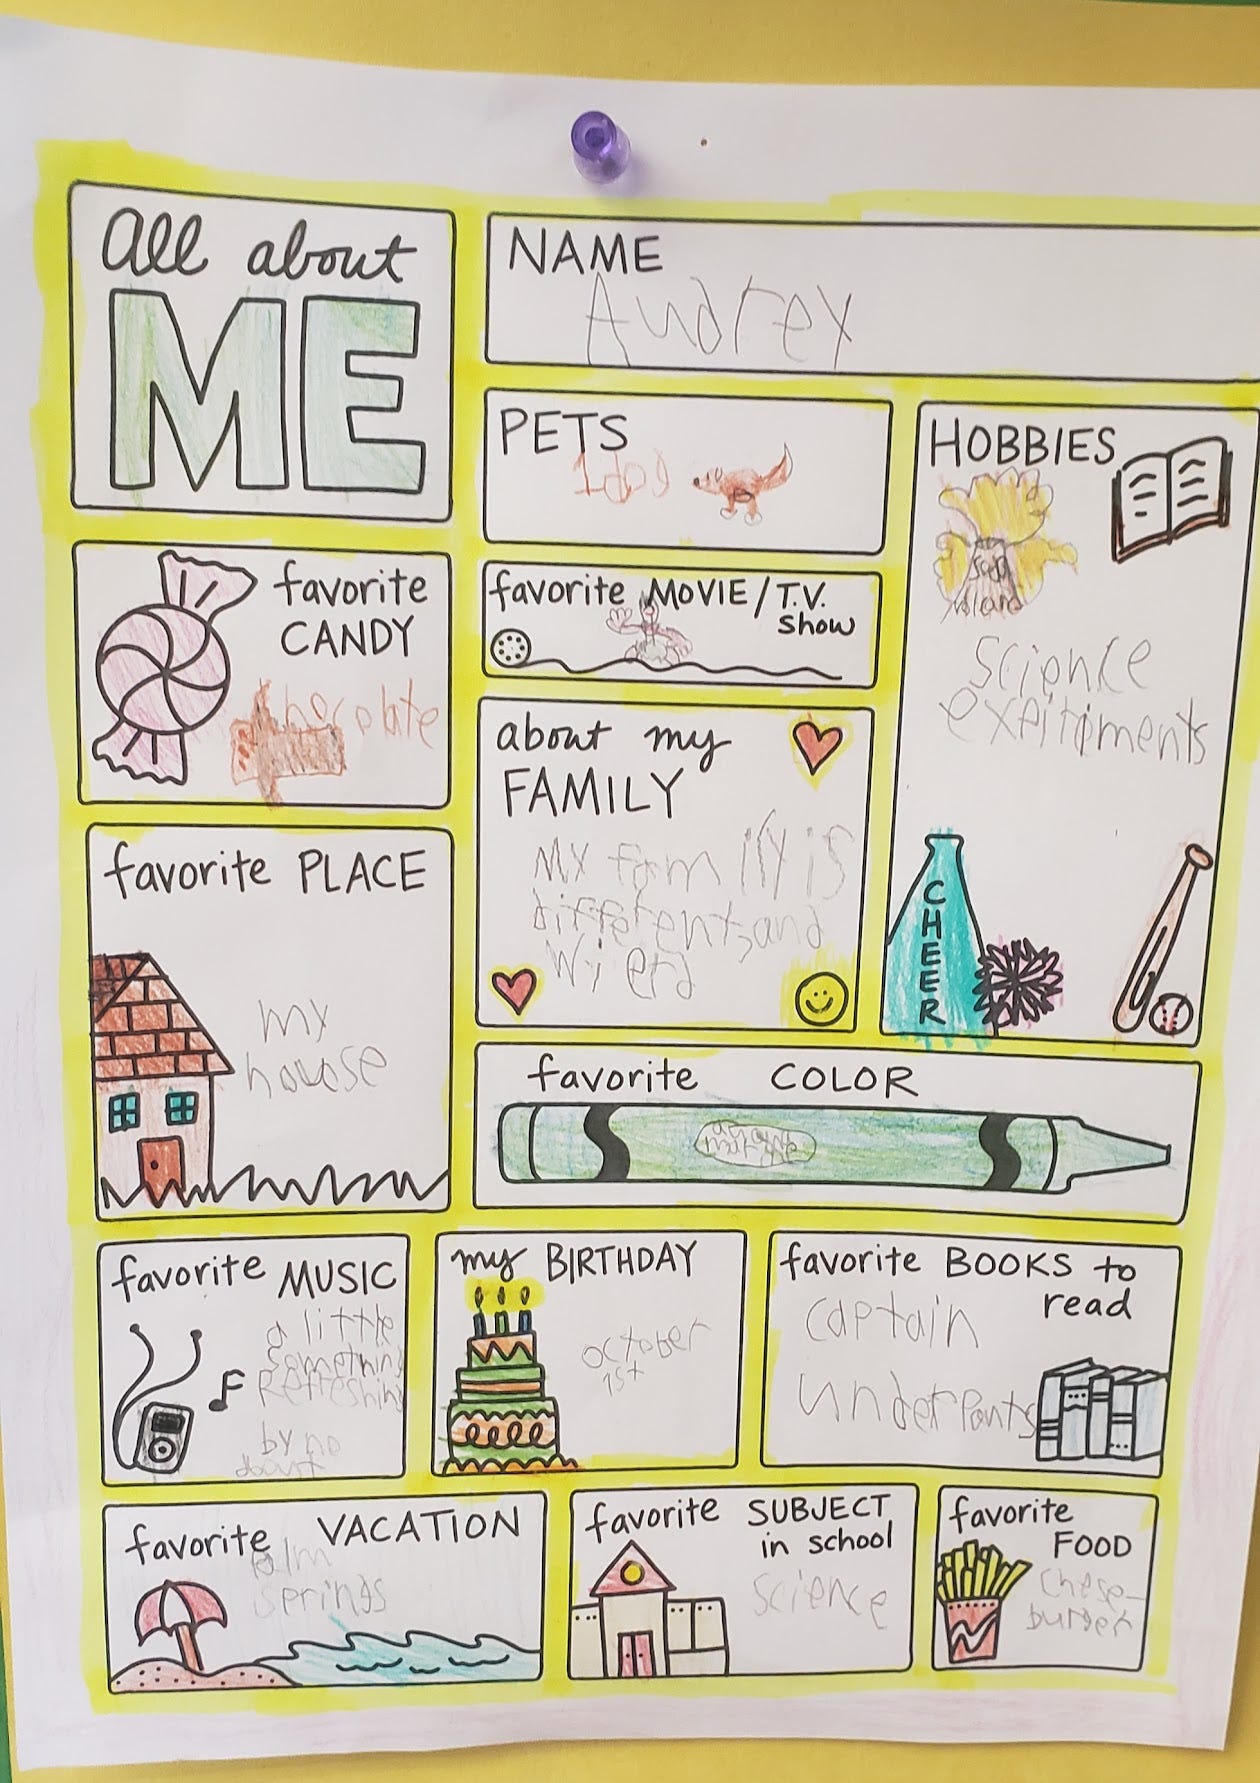 All about
ME
NAME
Audrey
PETS
1dog
HOBBIES
Science
CHEER
favorite
CANDY
chocolate
favorite MOVIE/T.V.
show
about my
FAMILY
My family is
different, and
Wierd
favorite PLACE
my
house
favorite COLOR
favorite MUSIC
a little
something
Refreshing
by no
doubt
my BIRTHDAY
october
1st
favorite BOOKS to
read
captain
underpants
favorite VACATION
palm
springs
favorite SUBJECT
in school
science
favorite
FOOD
chese-
burger